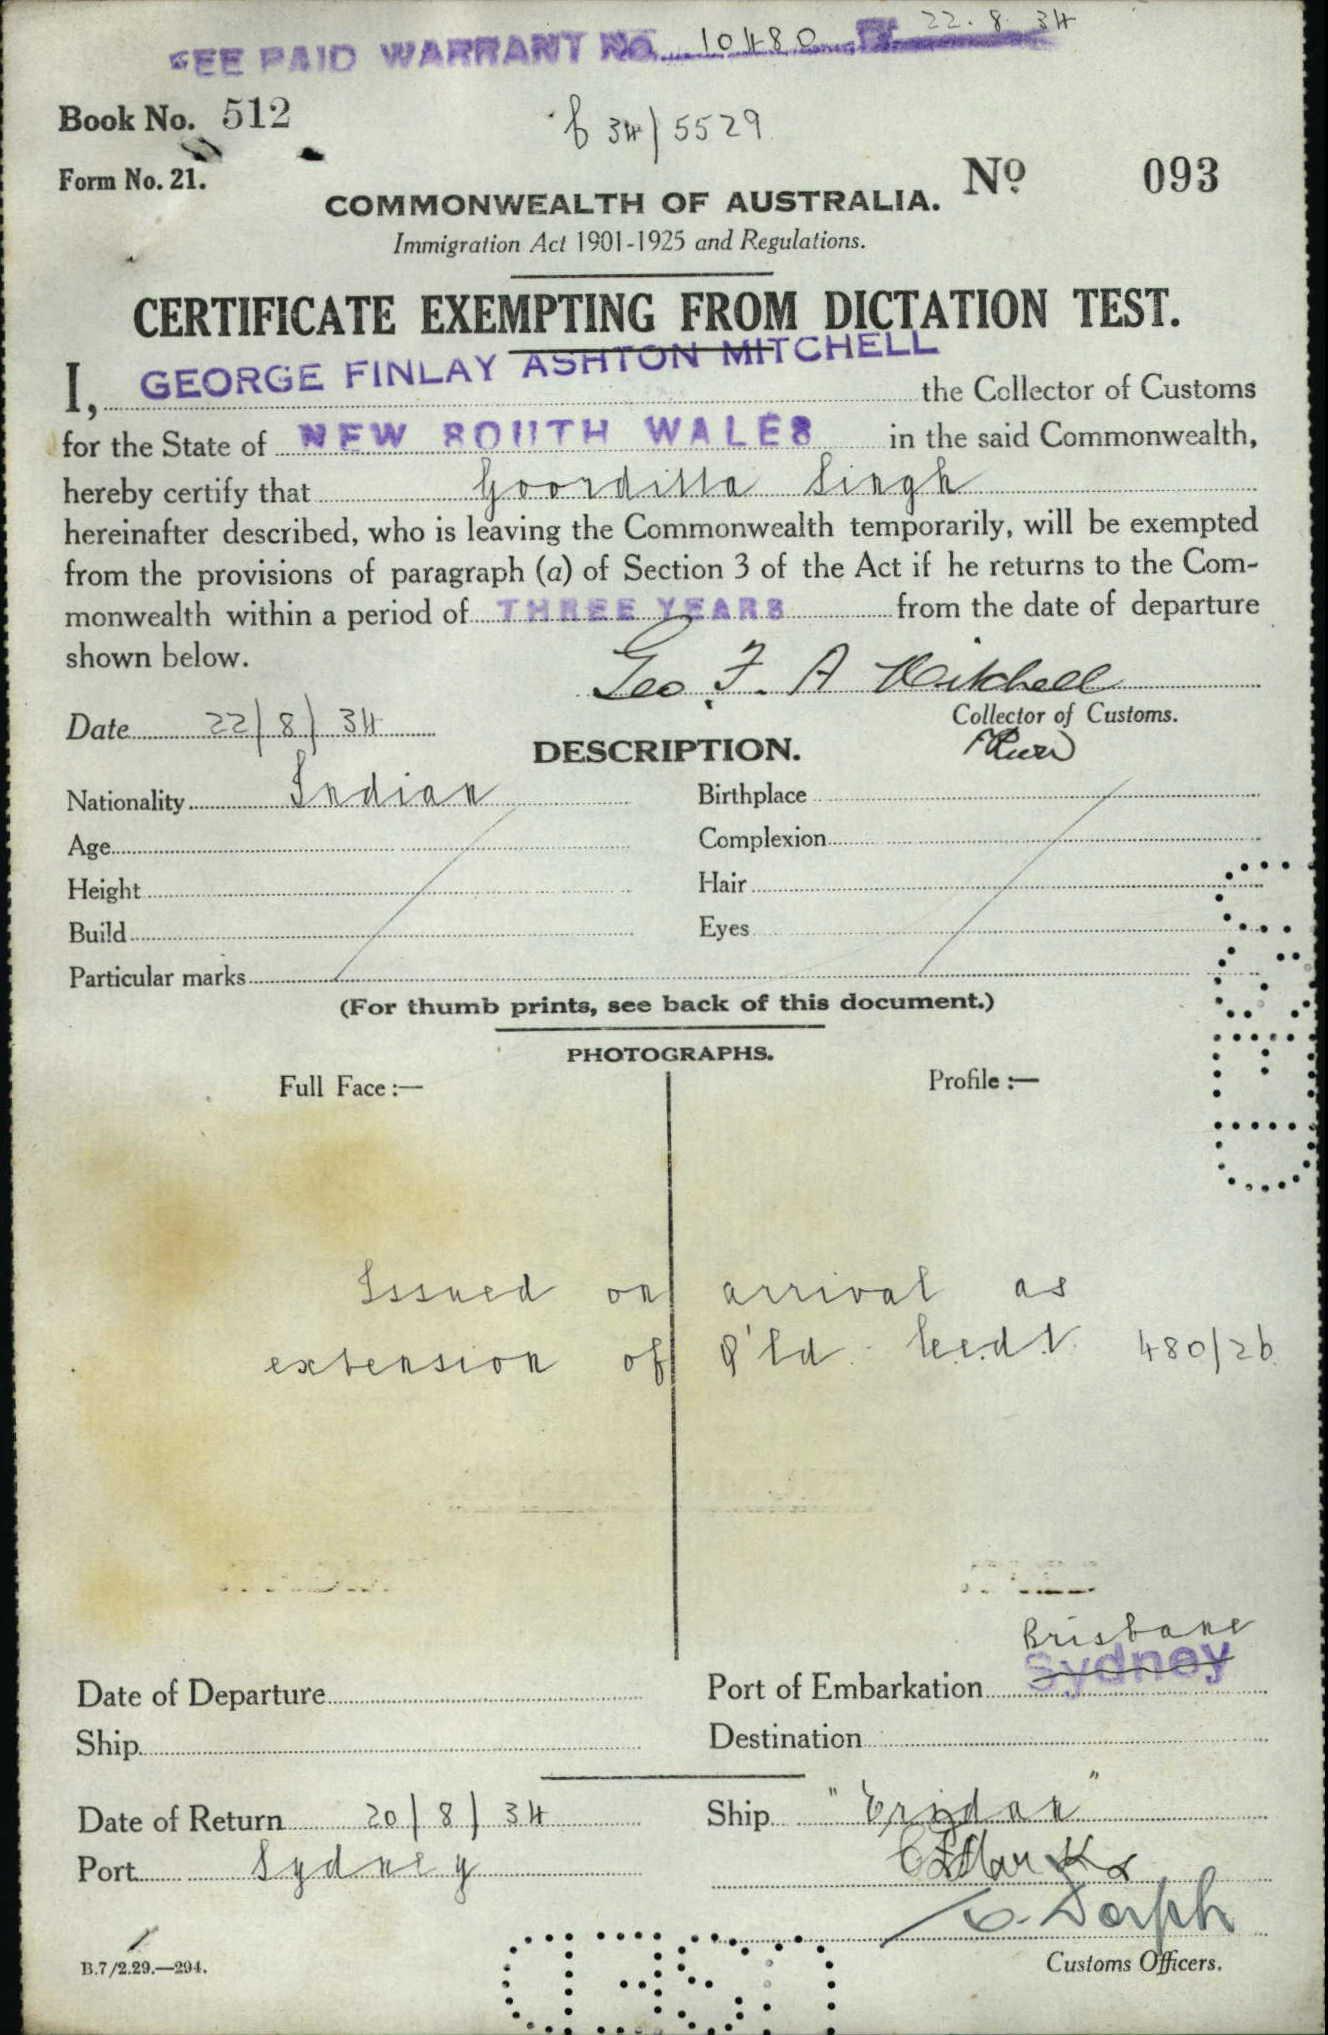 SEE PAID WARRANT No. 10480 22.8.34
Book No. 512
34/5529
Form No. 21.
No 093
COMMONWEALTH OF AUSTRALIA.
Immigration Act 1901-1925 and Regulations.
CERTIFICATE EXEMPTING FROM DICTATION TEST.
I, GEORGE FINLAY ASHTON MITCHELL the Collector of Customs
for the State of NEW SOUTH WALES in the said Commonwealth,
hereby certify that Goorditta Singh
hereinafter described, who is leaving the Commonwealth temporarily, will be exempted
from the provisions of paragraph (a) of Section 3 of the Act if he returns to the Com-
monwealth within a period of THREE YEARS from the date of departure
shown below.
Geo. F. A Mitchell
Collector of Customs.
Date 22/8/34
DESCRIPTION.
Nationality Indian Birthplace
Age Complexion
Height Hair
Build Eyes
Particular marks
(For thumb prints, see back of this document.)
PHOTOGRAPHS.
Full Face :— Profile :—
Issued on arrival as
extension of Q'ld. C.e.d.t. 480/26
Brisbane
Date of Departure Port of Embarkation Sydney
Ship Destination
Date of Return 20/8/34 Ship "Eridan"
Port Sydney
Customs Officers.
B.7/2.29.—294.
USED
USED